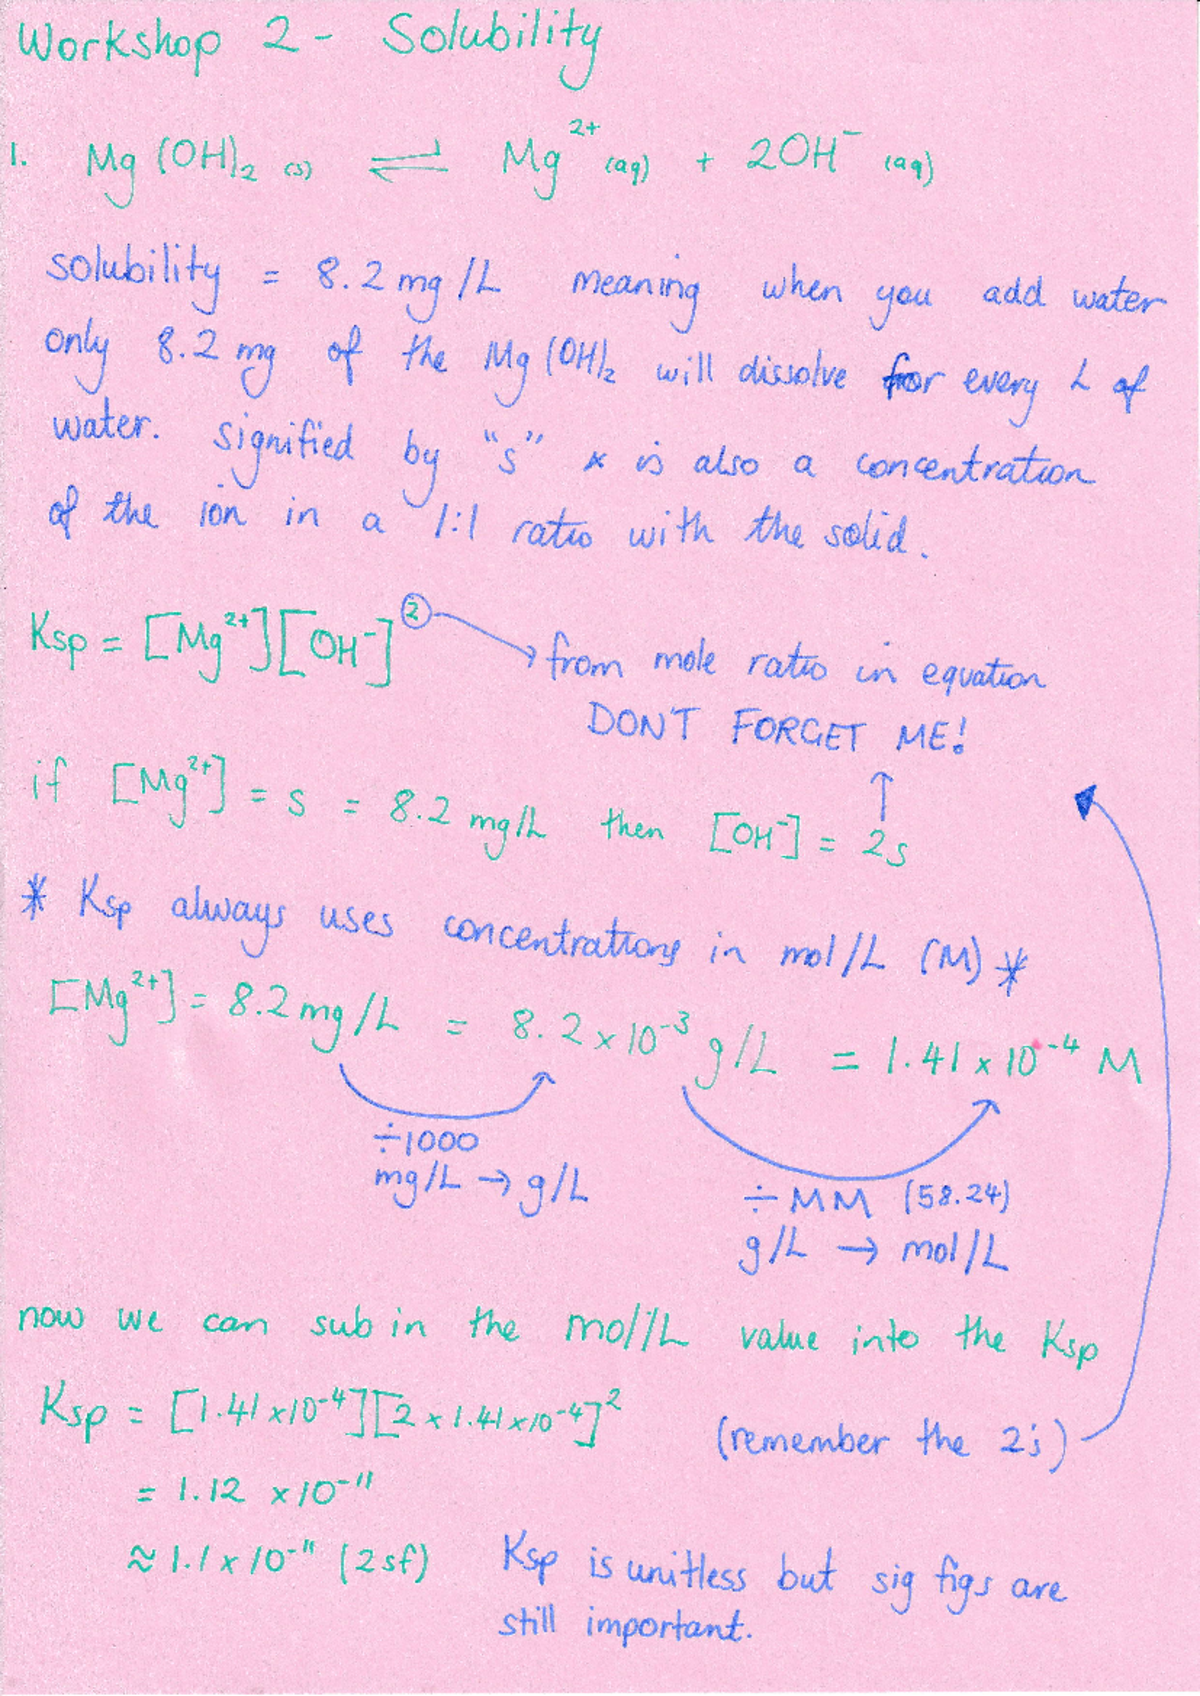 Workshop 2 - Solubility
1. Mg(OH)₂ (s) ⇌ Mg²⁺ (aq) + 2OH⁻ (aq)
solubility = 8.2 mg/L meaning when you add water
only 8.2 mg of the Mg(OH)₂ will dissolve for every L of
water. signified by "s" * is also a concentration
of the ion in a 1:1 ratio with the solid.
Ksp = [Mg²⁺][OH⁻]²
from mole ratio in equation
DON'T FORGET ME!
if [Mg²⁺] = s = 8.2 mg/L then [OH⁻] = 2s
* Ksp always uses concentrations in mol/L (M) *
[Mg²⁺] = 8.2 mg/L = 8.2 x 10⁻³ g/L = 1.41 x 10⁻⁴ M
÷1000
mg/L → g/L
÷ MM (58.24)
g/L → mol/L
now we can sub in the mol/L value into the Ksp
Ksp = [1.41 x 10⁻⁴][2 x 1.41 x 10⁻⁴]²
(remember the 2s)
= 1.12 x 10⁻¹¹
≈ 1.1 x 10⁻¹¹ (2sf)
Ksp is unitless but sig figs are
still important.